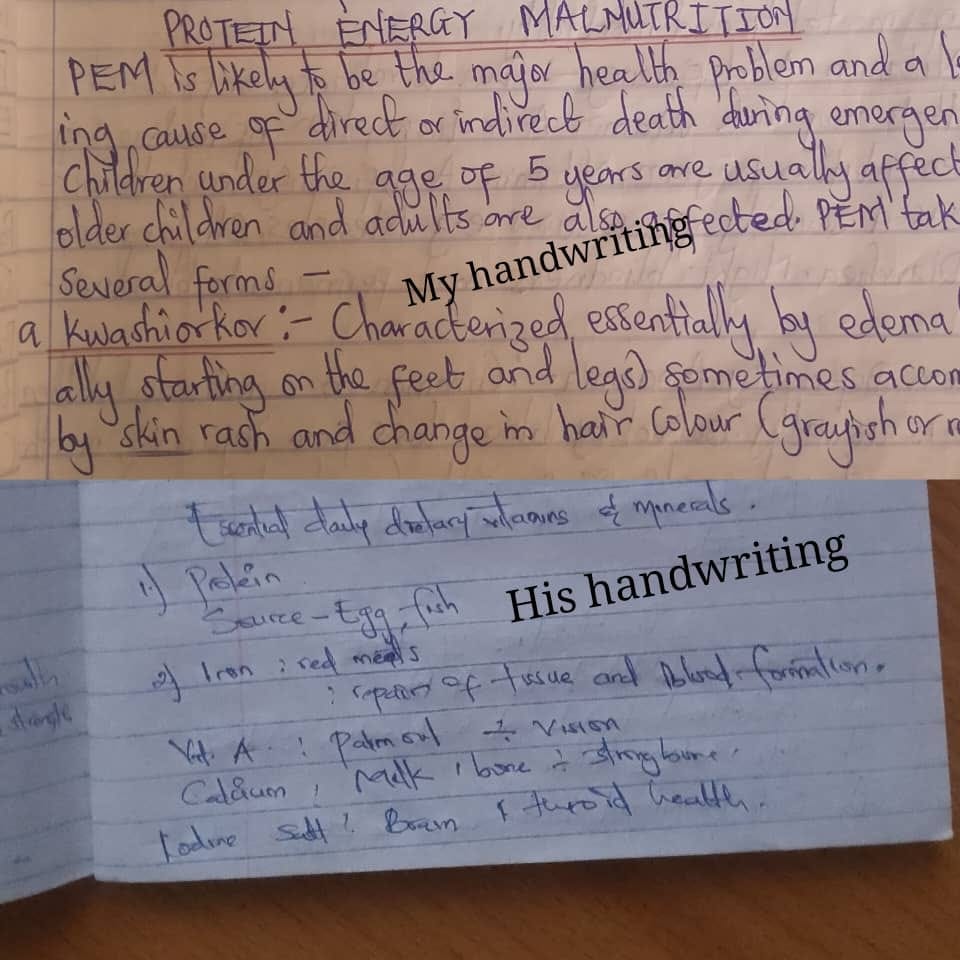 PROTEIN ENERGY MALNUTRITION
PEM is likely to be the major health problem and a l
ing cause of direct or indirect death during emergen
Children under the age of 5 years are usually affect
older children and adults are also affected. PEM tak
Several forms –
My handwriting
a Kwashiorkor :- Characterized essentially by edema
ally starting on the feet and legs) sometimes accom
by skin rash and change in hair colour (grayish or r
Essential daily dietary vitamins & minerals.
1.) Protein
His handwriting
Source – Egg, fish
2) Iron : red meats
: repairs of tissue and Blood formation.
Vit. A. : Palm oil ÷ Vision
Calcium ; milk , bone ÷ strong bone.
Iodine Salt : Brain & thyroid health.